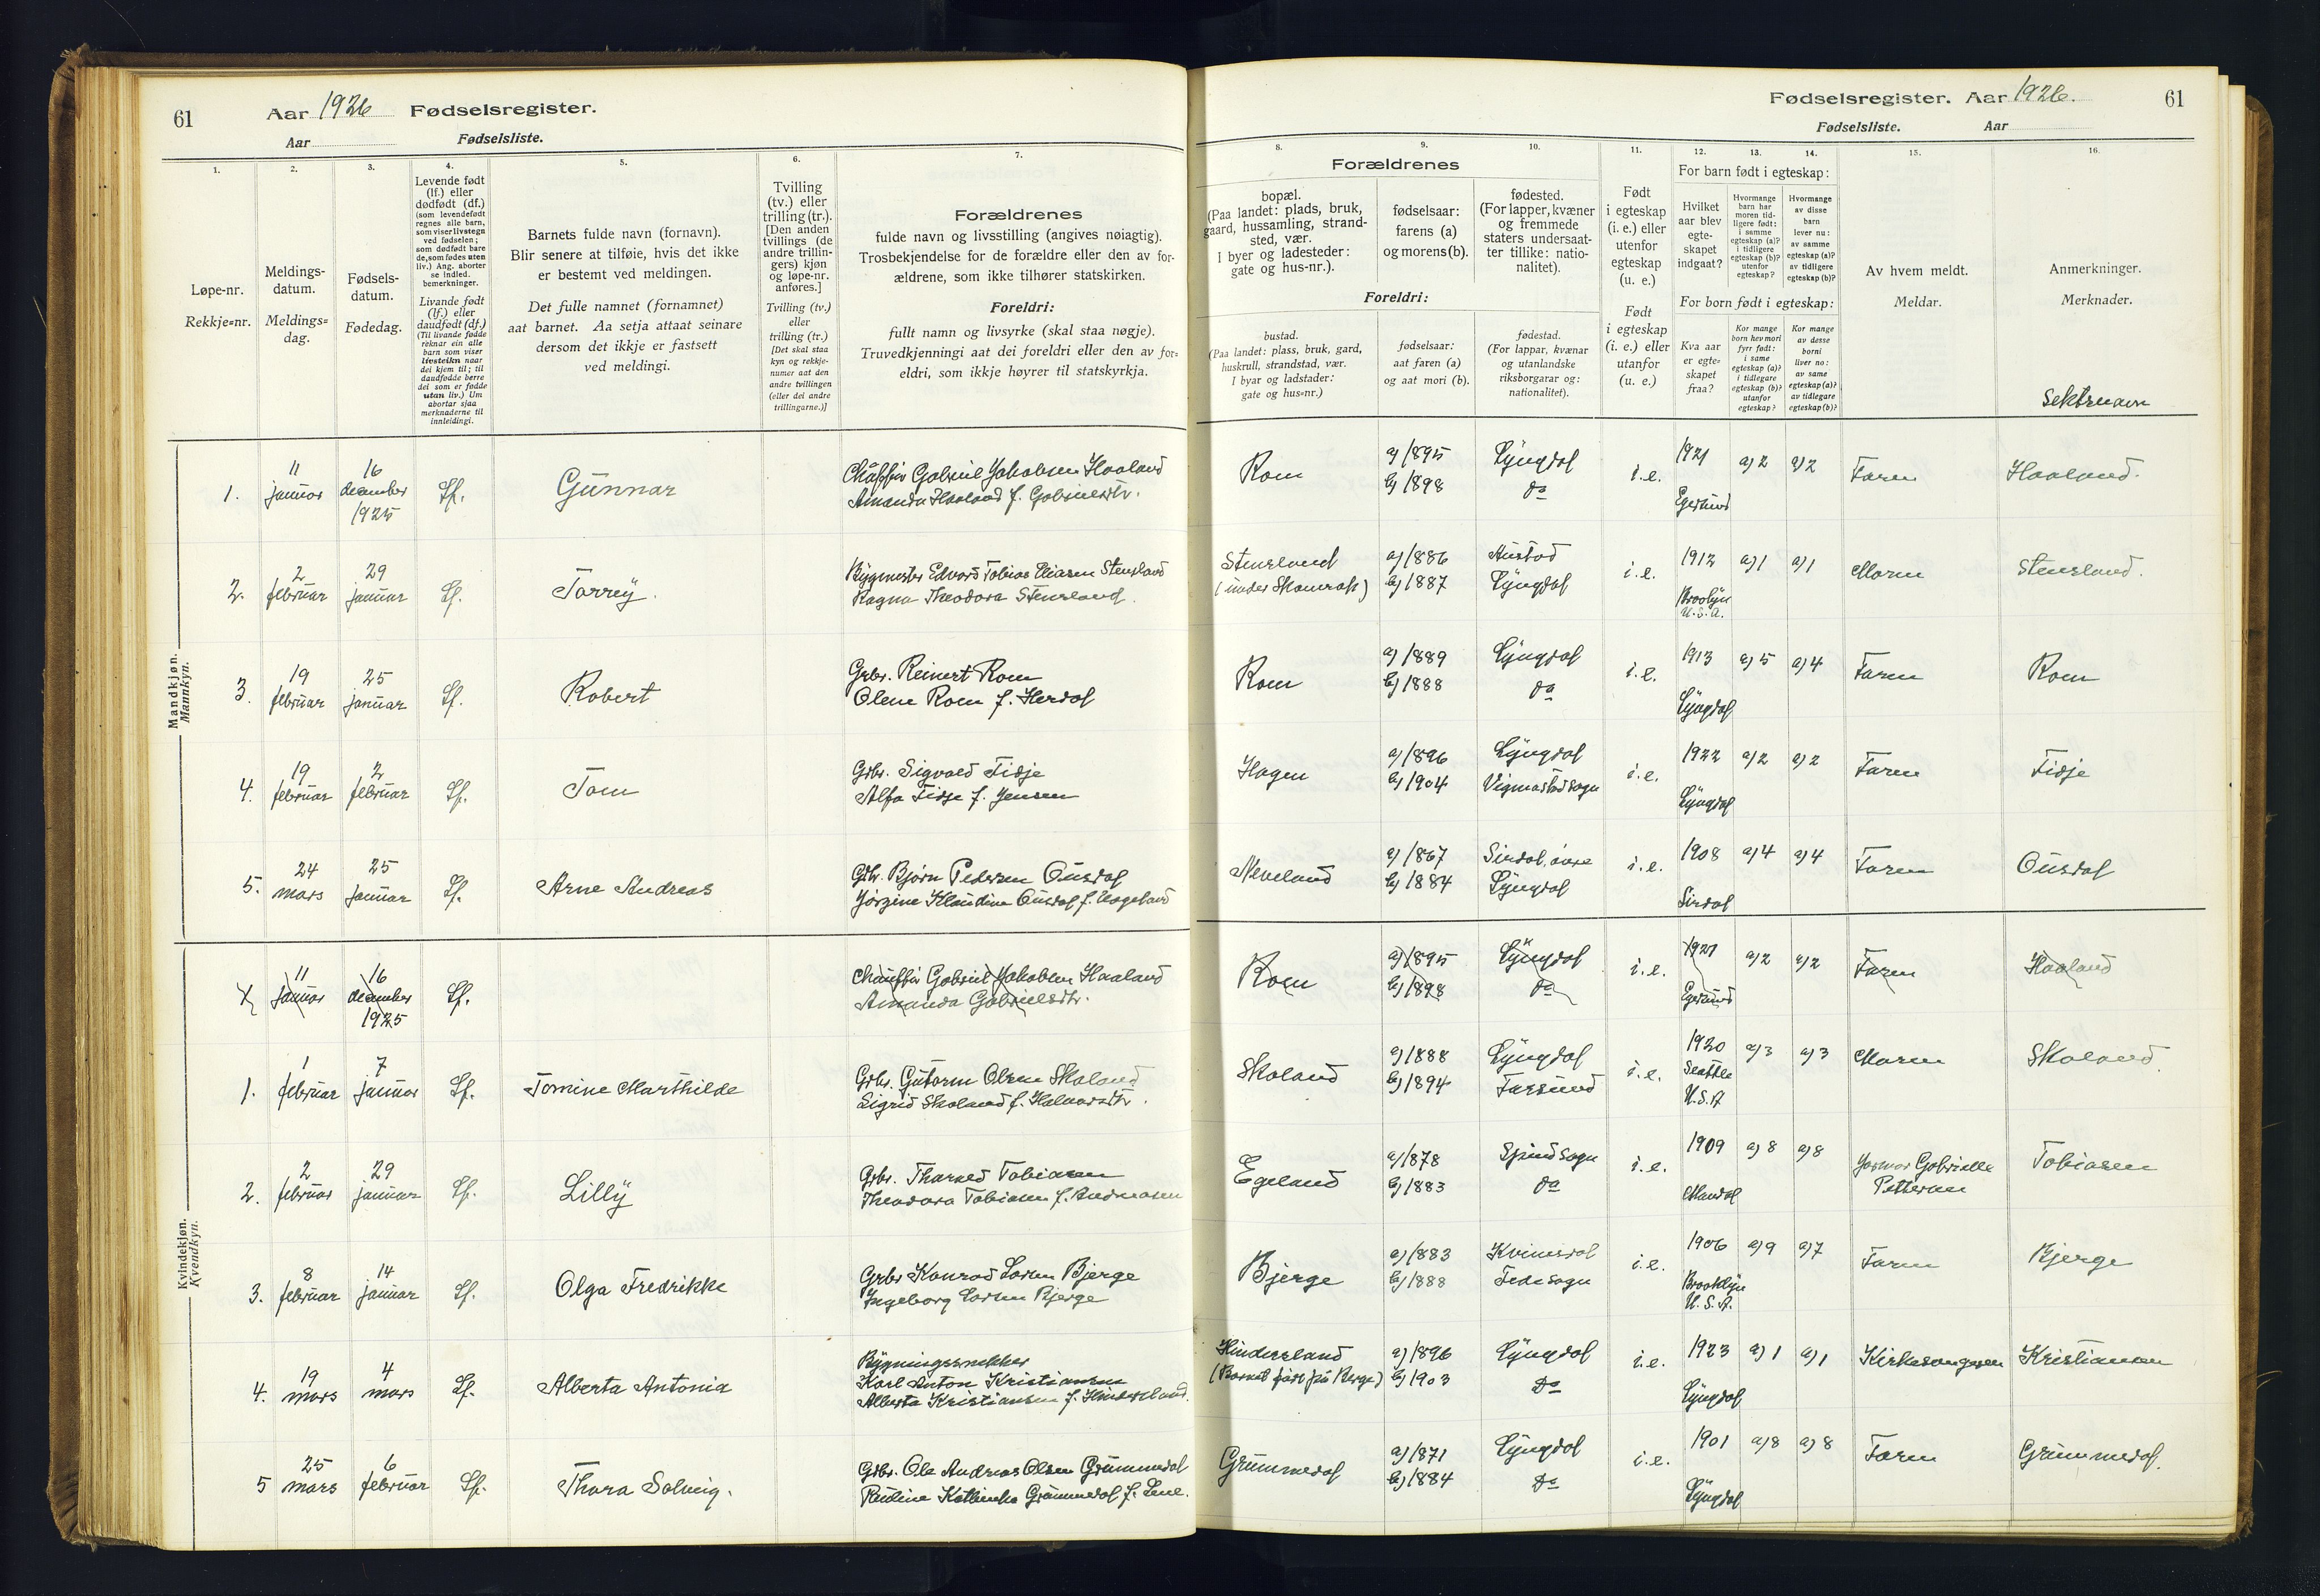 61
Aar 1926 Fødselsregister.
Aar
Fødselsliste.
1.
2.
3.
4.
5.
6.
7.
Løpe-nr.
Rekkje=nr.
Meldings-
datum.
Meldings=
dag.
Fødsels-
datum.
Fødedag.
Levende født
(lf.) eller
dødfødt (df.)
(som levendefødt
regnes alle barn,
som viser livstegn
ved fødselen;
som dødfødt bare
de, som fødes uten
liv.) Ang. aborter
se indled.
bemerkninger.
Livande født
(lf.) eller
daudfødt (df.)
(Til livande fødde
reknar ein alle
barn som viser
livsteikn naar
dei kjem til; til
daudfødde berre
dei som er fødde
utan liv.) Um
abortar sjaa
merknaderne til
innleidingi.
Barnets fulde navn (fornavn).
Blir senere at tilføie, hvis det ikke
er bestemt ved meldingen.
Det fulle namnet (fornamnet)
aat barnet. Aa setja attaat seinare
dersom det ikkje er fastsett
ved meldingi.
Tvilling
(tv.) eller
trilling (tr.).
[Den anden
tvillings (de
andre trillin-
gers) kjøn
og løpe-nr.
anføres.]
Tvilling (tv.)
eller
trilling (tr.)
[Det skal staa
kyn og rekkje-
numer aat den
andre tvillingen
(eller dei andre
trillingarne.)]
Forældrenes
fulde navn og livsstilling (angives nøiagtig).
Trosbekjendelse for de forældre eller den av for-
ældrene, som ikke tilhører statskirken.
Foreldri:
fullt namn og livsyrke (skal staa nøgje).
Truvedkjenningi aat dei foreldri eller den av for=
eldri, som ikkje høyrer til statskyrkja.
Mandkjøn.
Mannkyn.
1. 11 januar 16 december 1925 Lf. Gunnar
Chauffør Gabriel Jakobsen Haaland
Amanda Haaland f. Gabrielsdtr.
2. 2 februar 29 januar Lf. Torrey.
Bygmester Edvard Tobias Eliasen Stensland
Ragna Theodora Stensland.
3. 19 februar 25 januar Lf. Robert
Grbr. Reinert Rom
Olene Rom f. Herdal
4. 19 februar 2 februar Lf. Tom
Grbr. Sigvald Tidje
Alfa Tidje f. Jensen
5. 24 mars 25 januar Lf. Arne Andreas
Grbr. Bjørn Pedersen Ousdal
Jørgine Klaudine Ousdal f. Hageland
Kvindekjøn.
Kvendkyn.
1 11 januar 16 december 1925 Lf.
Chauffør Gabriel Jakobsen Haaland
Amanda Gabrielsdtr.
1. 1 februar 7 januar Lf. Tomine Marthilde
Grbr. Gutorm Olsen Skoland
Sigrid Skoland f. Halvorsdtr.
2. 2 februar 29 januar Lf. Lilly
Grbr. Tharald Tobiasen
Theodora Tobiasen f. Andreasen
3. 8 februar 14 januar Lf. Olga Fredrikke
Grbr Konrad Larsen Bjerge
Ingeborg Larsen Bjerge
4. 19 mars 4 mars Lf. Alberta Antonia
Bygningssnekker
Karl Anton Kristiansen
Alberta Kristiansen f. Hindersland.
5 25 mars 6 februar Lf. Thora Solveig.
Grbr. Ole Andreas Olsen Grummedal
Pauline Kathinka Grummedal f. Lene.
Fødselsregister. Aar 1926.
61
Fødselsliste.
Aar
8.
9.
10.
11.
12.
13.
14.
15.
16.
Forældrenes
bopæl.
(Paa landet: plads, bruk,
gaard, hussamling, strand-
sted, vær.
I byer og ladesteder:
gate og hus-nr.).
fødselsaar:
farens (a)
og morens (b).
fødested.
(For lapper, kvæner
og fremmede
staters undersaat-
ter tillike: natio-
nalitet).
Foreldri:
bustad.
(Paa landet: plass, bruk, gard,
huskrull, strandstad, vær.
I byar og ladstader:
gate og hus=nr.)
fødselsaar:
aat faren (a)
og aat mori (b).
fødestad.
(For lappar, kvænar
og utanlandske
riksborgarar og:
nationalitet).
Født
i egteskap
(i. e.) eller
utenfor
egteskap
(u. e.)
Født
i egteskap
(i. e.) eller
utanfor
(u. e.)
For barn født i egteskap:
Hvilket
aar blev
egte-
skapet
indgaat?
Hvormange
barn har
moren tid-
ligere født:
i samme
egteskap (a)?
i tidligere
egteskap (b)?
utenfor
egteskap?
Hvormange
av disse
barn
lever nu:
av samme
egteskap (a)?
av tidligere
egteskap (b)?
For born født i egteskap:
Kva aar
er egte=
skapet
fraa?
Kor mange
born hev mori
fyrr født:
i same
egteskap (a)?
i tidlegare
egteskap (b)?
utanfor
egteskap?
Kor mange
av desse
borni
liver no:
av same
egteskap (a)?
av tidlegare
egteskap (b)?
Av hvem meldt.
Meldar.
Anmerkninger.
Merknader.
Slektsnavn
Rom a) 1895 Lyngdal i.e. 1921 a) 2 a) 2 Faren Haaland.
b) 1898 do Egersund
Stensland a) 1886 Austad i.e. 1912 a) 1 a) 1 Moren Stensland.
b) 1887 Lyngdal Brooklyn
U.S.A.
Rom a) 1889 Lyngdal i.e. 1913 a) 5 a) 4 Faren Rom
b) 1888 do Lyngdal
Hagen a) 1896 Lyngdal i.e. 1922 a) 2 a) 2 Faren Tidje
b) 1904 Vigmostad sogn Lyngdal
Neveland a) 1867 Sirdal, øvre i.e. 1908 a) 4 a) 4 Faren Ousdal
b) 1884 Lyngdal Sirdal
Rom a) 1895 Lyngdal i.e. 1921 a) 2 a) 2 Faren Haaland
b) 1898 do Egersund
Skoland a) 1888 Lyngdal i.e. 1920 a) 3 a) 3 Moren Skoland.
b) 1894 Farsund Seattle
U.S.A
Egeland a) 1878 Spind sogn i.e. 1909 a) 8 a) 8 Gabrielle Tobiasen
b) 1883 do Mandal Pettersen
Bjerge a) 1883 Kvinesdal i.e. 1906 a) 9 a) 7 Faren Bjerge
b) 1888 Feda sogn Brooklyn
U.S.A.
Hindersland a) 1896 Lyngdal i.e. 1923 a) 1 a) 1 Kirkesangeren Kristiansen
(Barnet født på Berge) b) 1903 Do Lyngdal
Grummedal a) 1871 Lyngdal i.e. 1901 a) 8 a) 8 Faren Grummedal.
b) 1884 Do Lyngdal